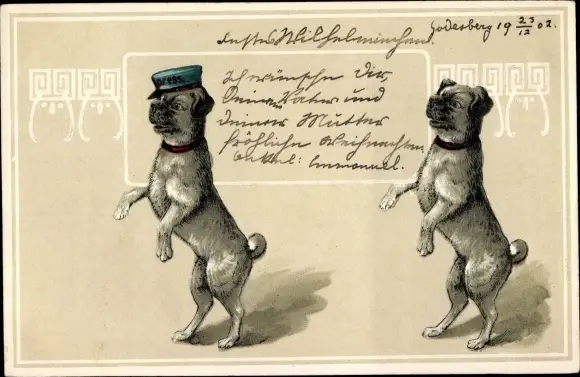 Godesberg 19 23/12 02.
Wilhelminchen.
Ich wünsche Dir,
Deinem Vater und
Deiner Mutter
fröhliche Weihnachten
Onkel: Immanuel.
press.